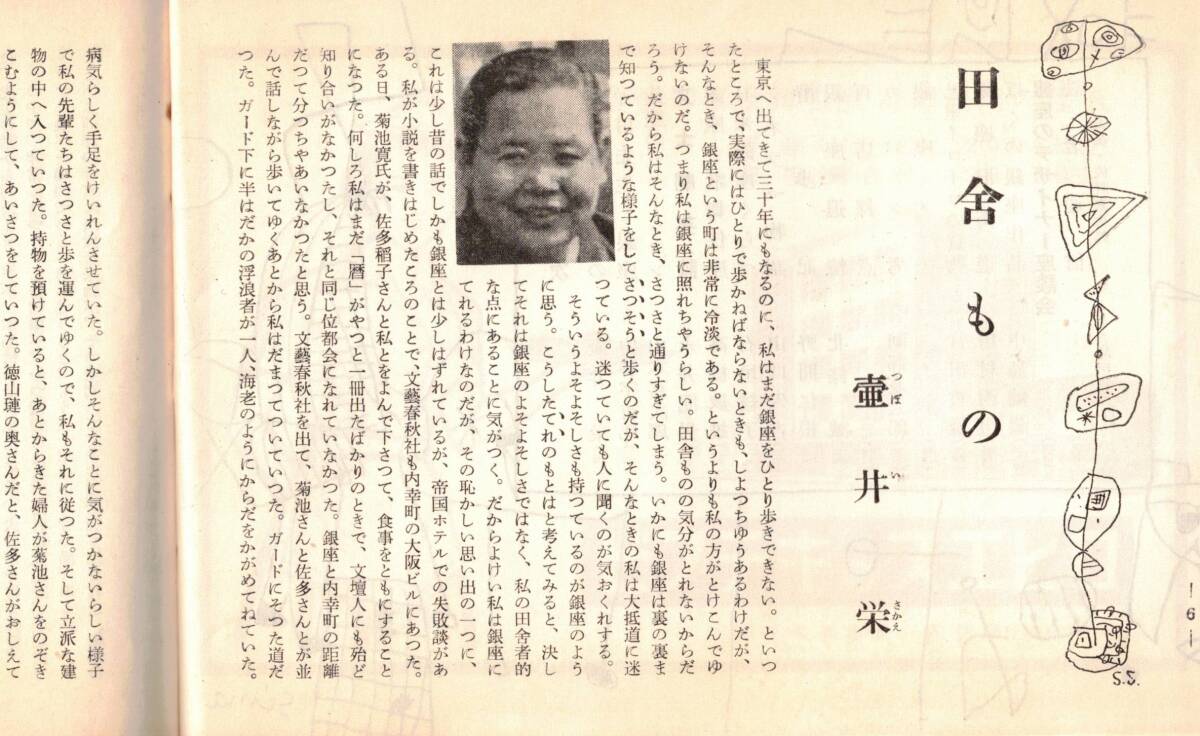 田舎もの
壷井栄
つぼ い さかえ
東京へ出てきて三十年にもなるのに、私はまだ銀座をひとり歩きできない。といつ
たところで、実際にはひとりで歩かねばならないときも、しよつちゆうあるわけだが、
そんなとき、銀座という町は非常に冷淡である。というよりも私の方がとけこんでゆ
けないのだ。つまり私は銀座に照れちやうらしい。田舎ものの気分がとれないからだ
ろう。だから私はそんなとき、さつさと通りすぎてしまう。いかにも銀座は裏の裏ま
で知つているような様子をしてさつそうと歩くのだが、そんなときの私は大抵道に迷
つている。迷つていても人に聞くのが気おくれする。
そういうよそよそしさも持つているのが銀座のよう
に思う。こうしたてれのもとはと考えてみると、決し
てそれは銀座のよそよそしさではなく、私の田舎者的
な点にあることに気がつく。だからよけい私は銀座に
てれるわけなのだが、その恥かしい思い出の一つに、
これは少し昔の話でしかも銀座とは少しはずれているが、帝国ホテルでの失敗談があ
る。私が小説を書きはじめたころのことで、文藝春秋社も内幸町の大阪ビルにあつた。
ある日、菊池寛氏が、佐多稲子さんと私とをよんで下さつて、食事をともにすること
になつた。何しろ私はまだ「暦」がやつと一冊出たばかりのときで、文壇人にも殆ど
知り合いがなかつたし、それと同じ位都会になれていなかつた。銀座と内幸町の距離
だつて分つちやあいなかつたと思う。文藝春秋社を出て、菊池さんと佐多さんとが並
んで話しながら歩いてゆくあとから私はだまつてついていつた。ガードにそつた道だ
つた。ガード下に半はだかの浮浪者が一人、海老のようにからだをかがめてねていた。
病気らしく手足をけいれんさせていた。しかしそんなことに気がつかないらしい様子
で私の先輩たちはさつさと歩を運んでゆくので、私もそれに従つた。そして立派な建
物の中へ入つていつた。持物を預けていると、あとからきた婦人が菊池さんをのぞき
こむようにして、あいさつをしていつた。徳山璉の奥さんだと、佐多さんがおしえて
6
S.S.